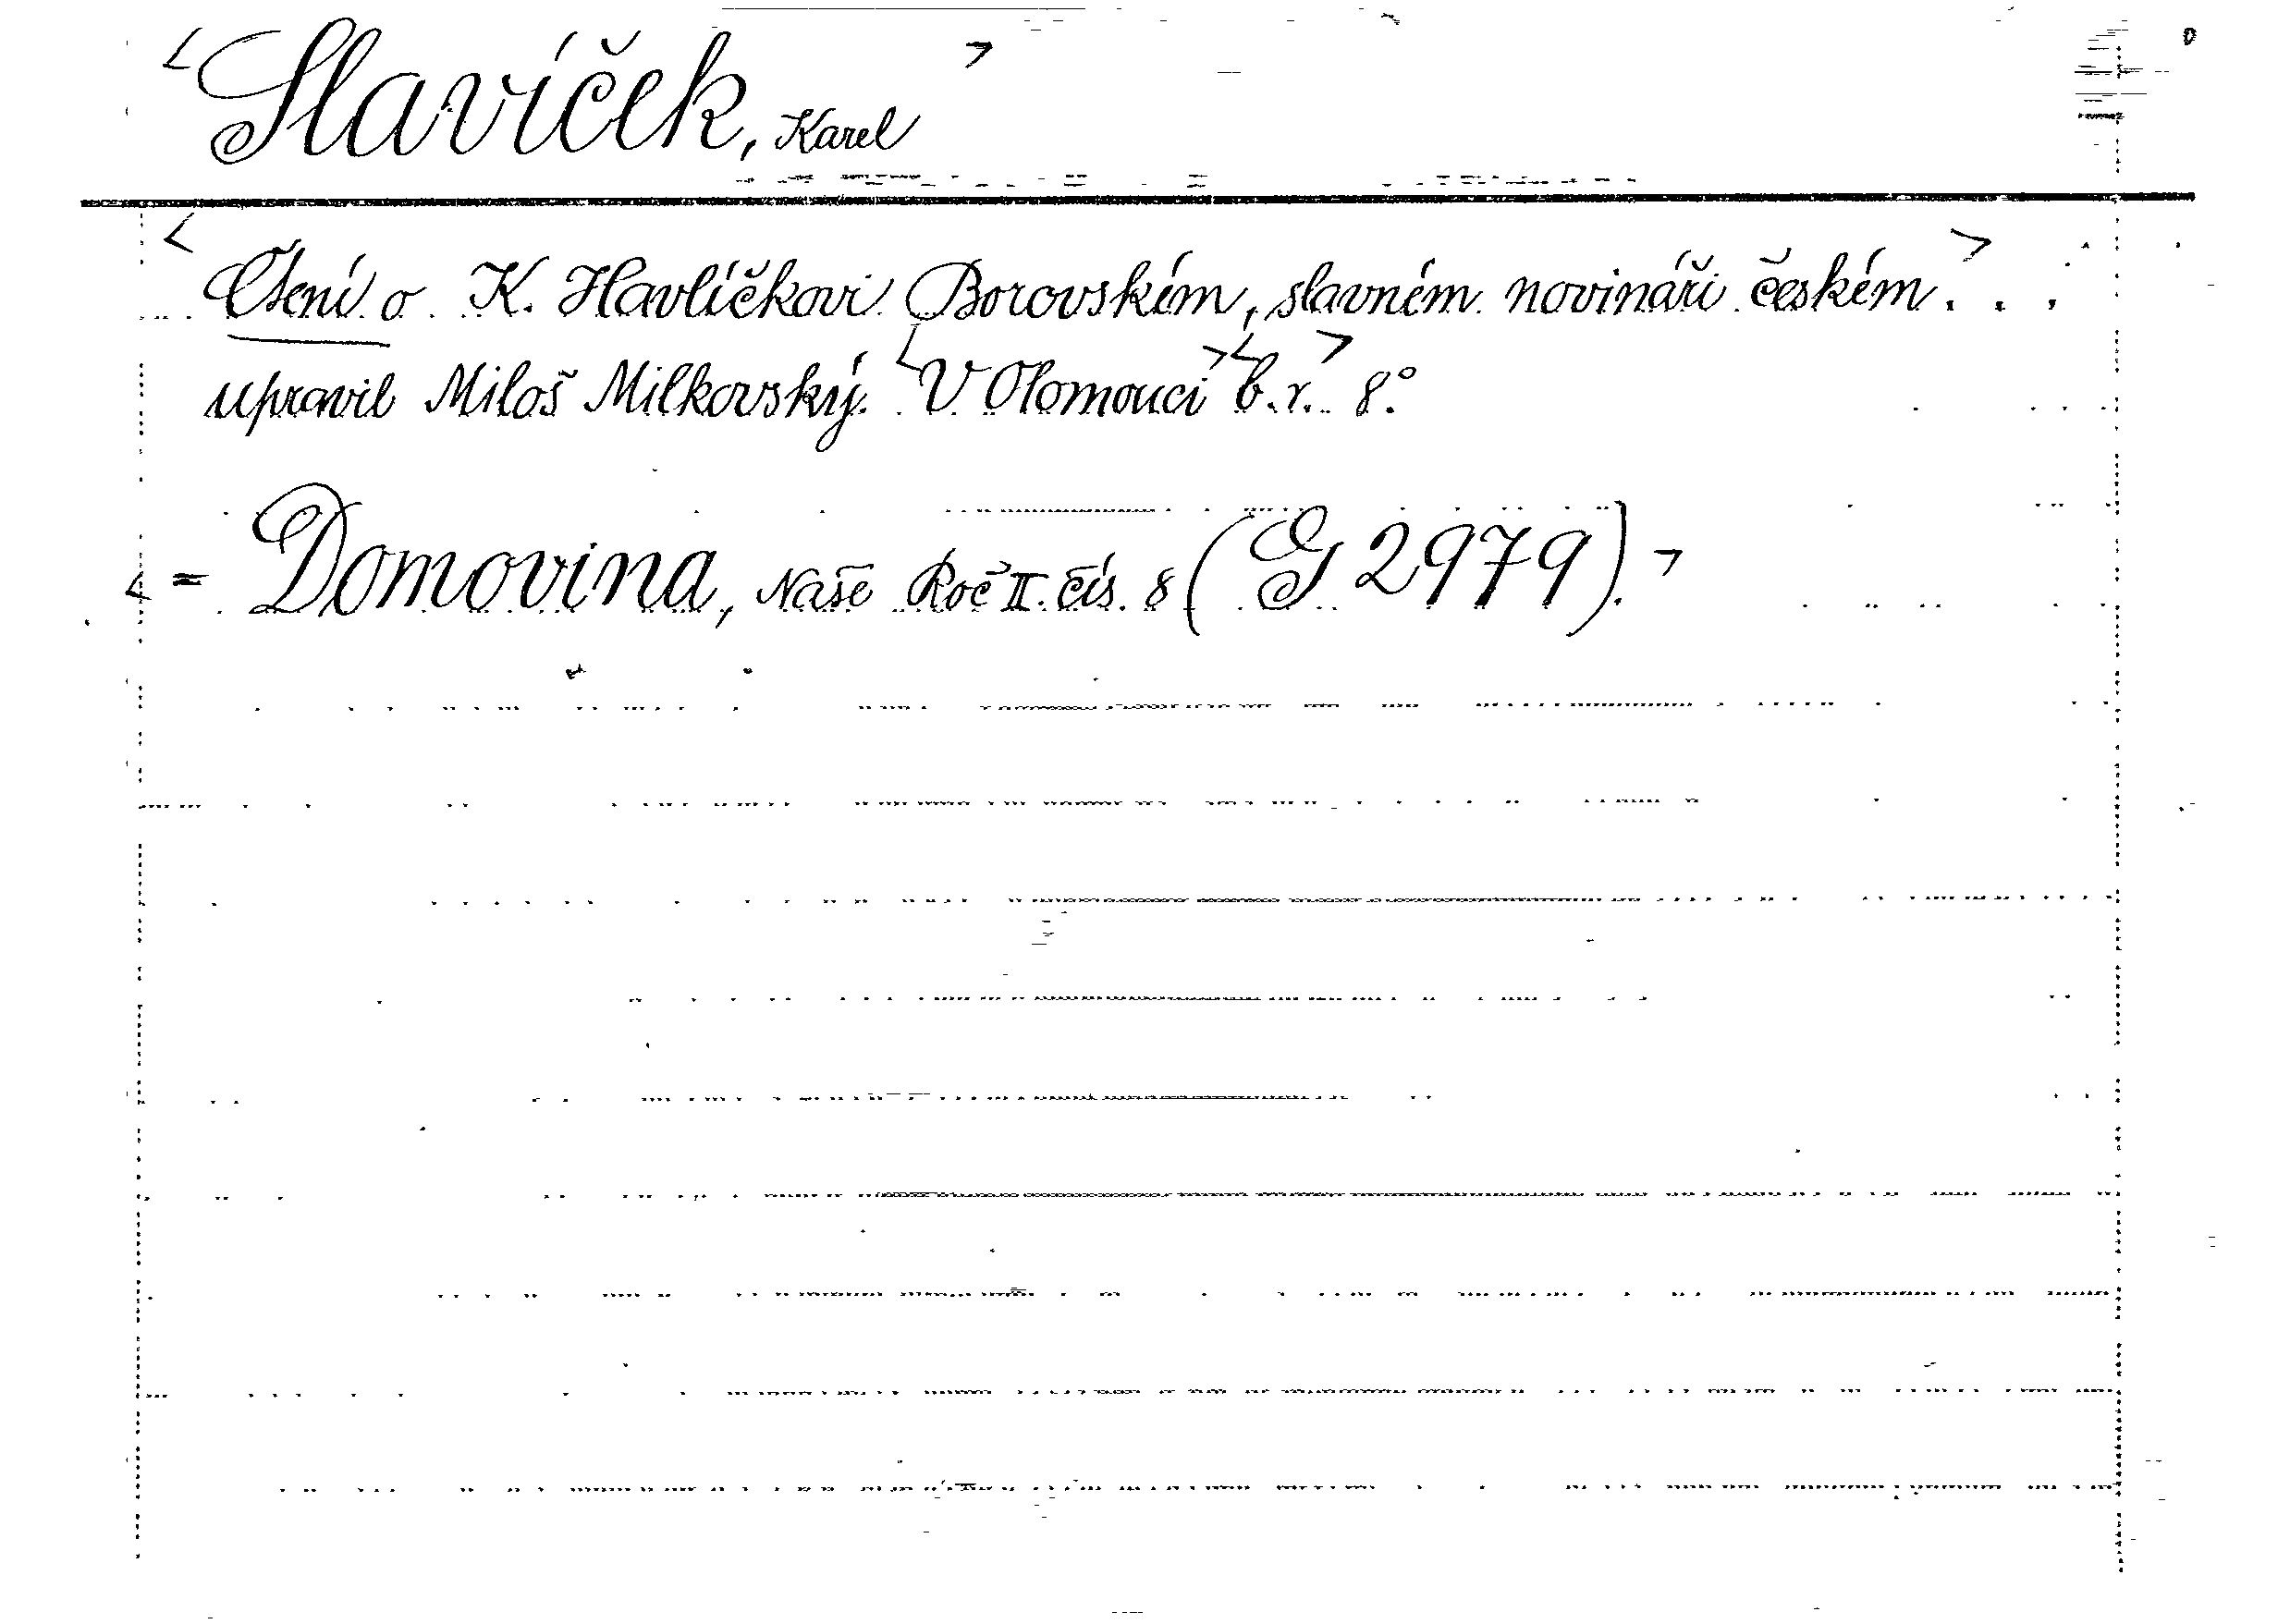 <Slavíček, Karel>
<Čtení o K. Havlíčkovi Borovském, slavném novináři českém>...
upravil Miloš Milkovský. <V Olomouci> <b.r.> 8°
<= Domovina, Naše Roč II. čís. 8 (G 2979).>